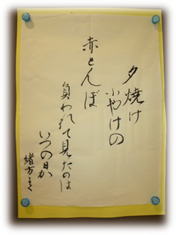 夕焼け
小やけの
赤とんぼ
負われて見たのは
いつの日か
緒方